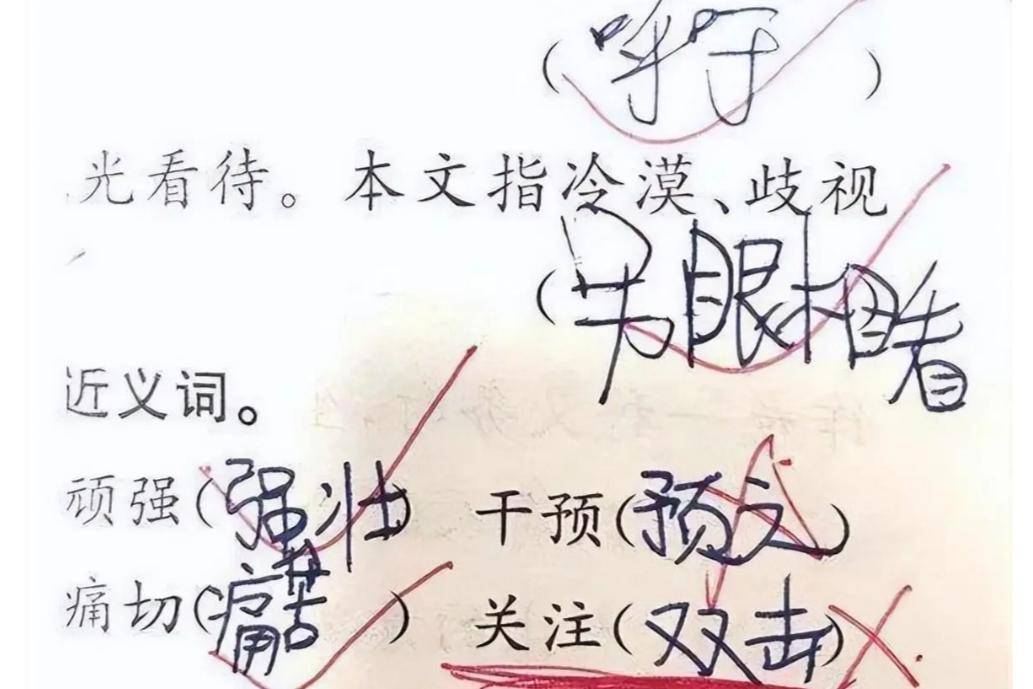 (呼吁)
光看待。本文指冷漠、歧视
(另眼相看)
近义词。
顽强(强壮) 干预(预之)
痛切(痛苦) 关注(双击)